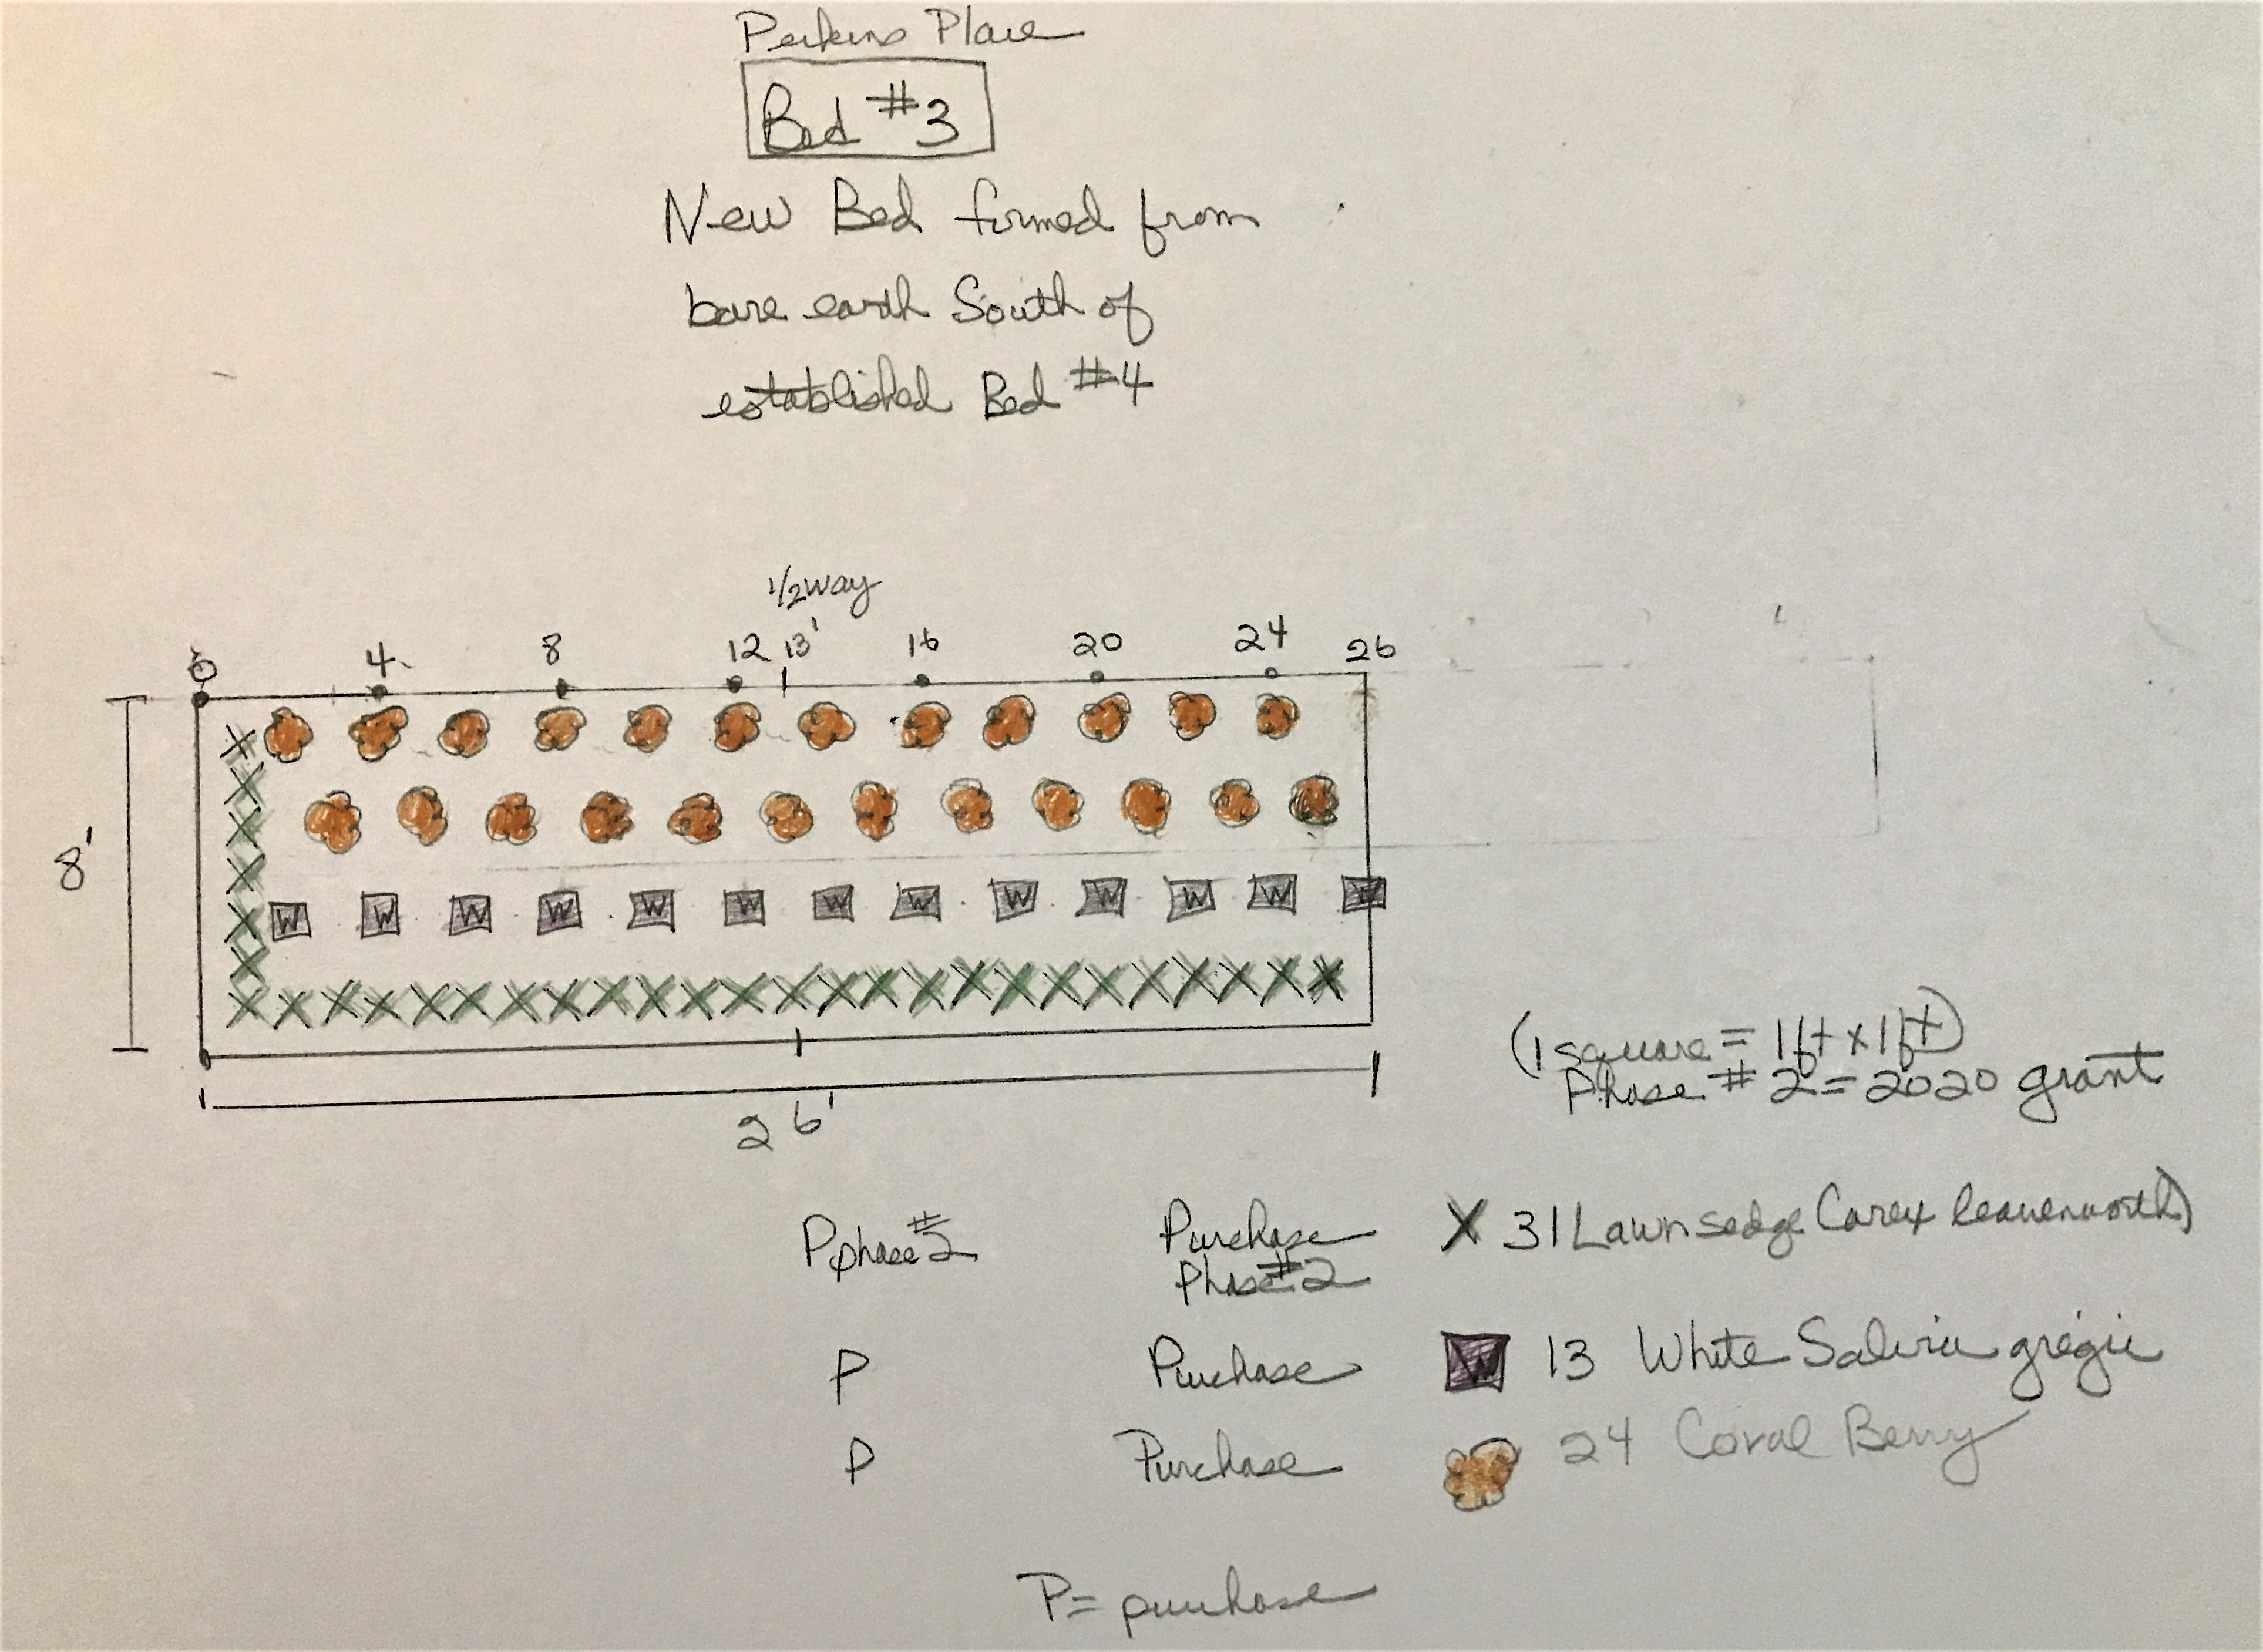 Perkins Place
Bed #3
New Bed formed from
bare earth South of
established Bed #4
1/2 way
0 4 8 12 13' 16 20 24 26
8'
W W W W W W W W W W W W W
26'
(1 square = 1ft x 1ft)
Phase #2 = 2020 grant
P phase #2 Purchase Phase #2 X 31 Lawn sedge Carex leavenworthi
P Purchase W 13 White Salvia gregii
P Purchase 24 Coral Berry
P = purchase